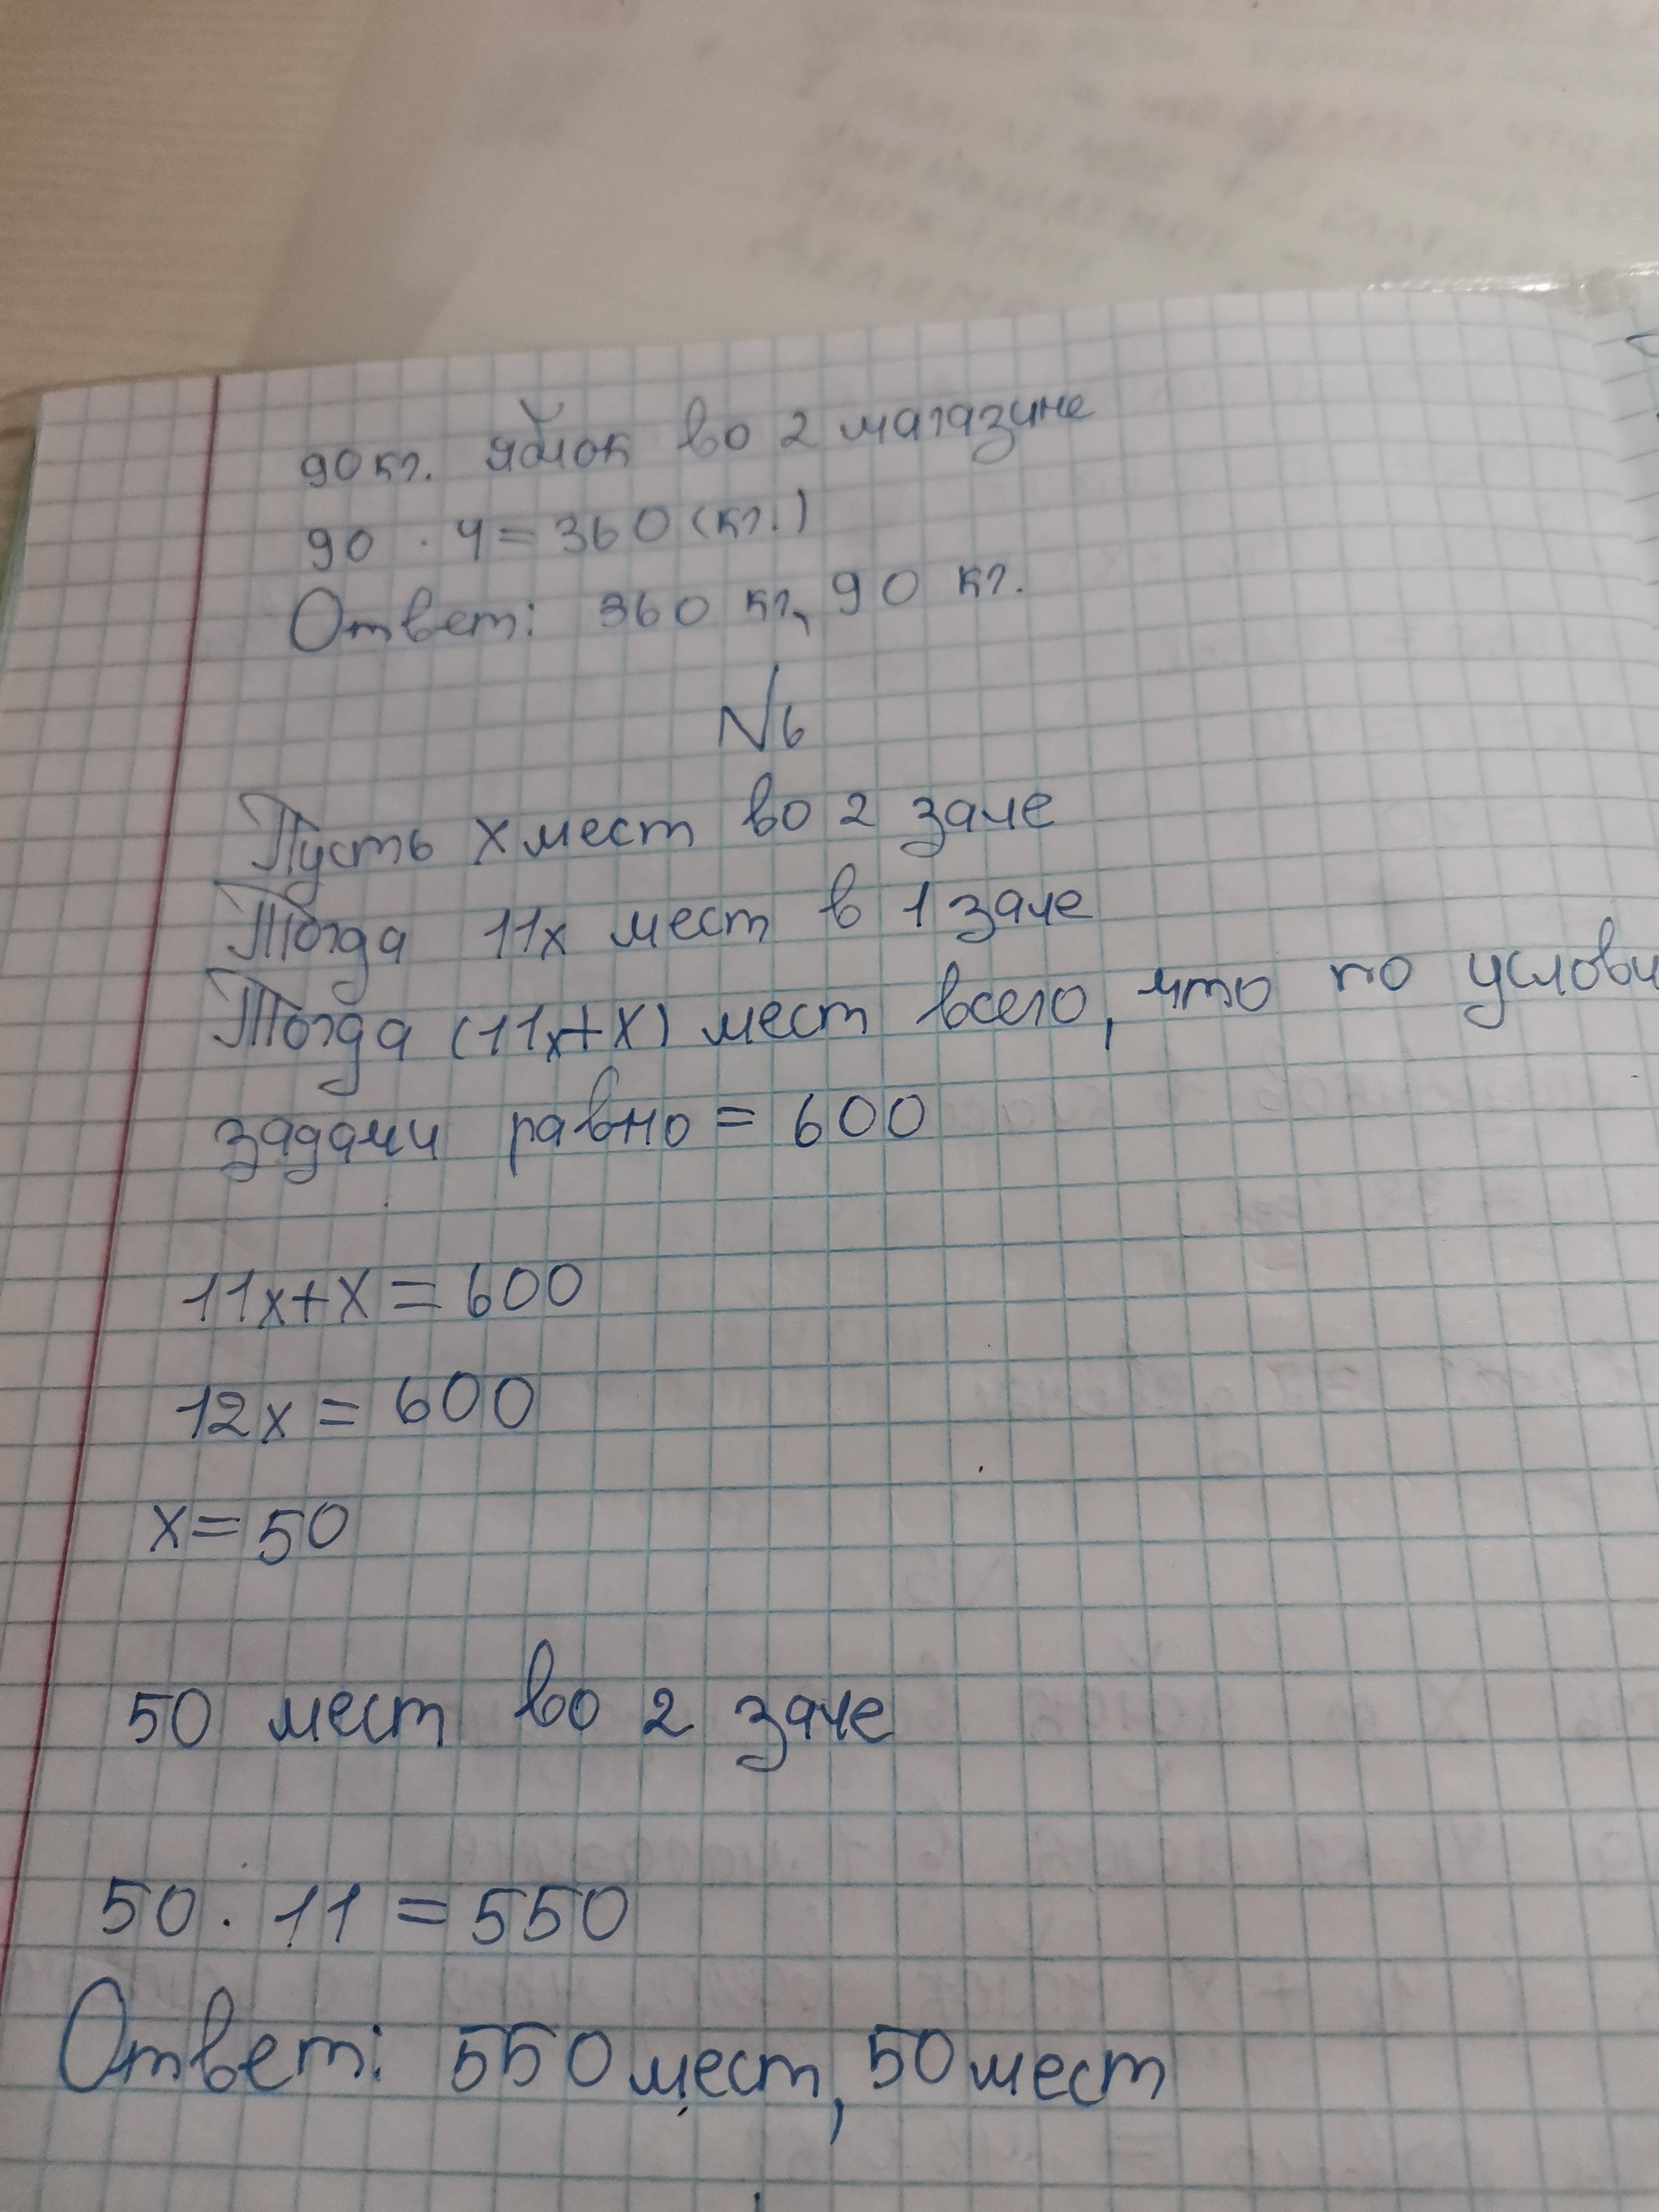 90 кг. яблок во 2 магазине
90 · 4 = 360 (кг.)
Ответ: 360 кг, 90 кг.
№6
Пусть x мест во 2 зале
Тогда 11x мест в 1 зале
Тогда (11x+x) мест всего, что по услови
задачи равно = 600
11x+x = 600
12x = 600
x = 50
50 мест во 2 зале
50 · 11 = 550
Ответ: 550 мест, 50 мест